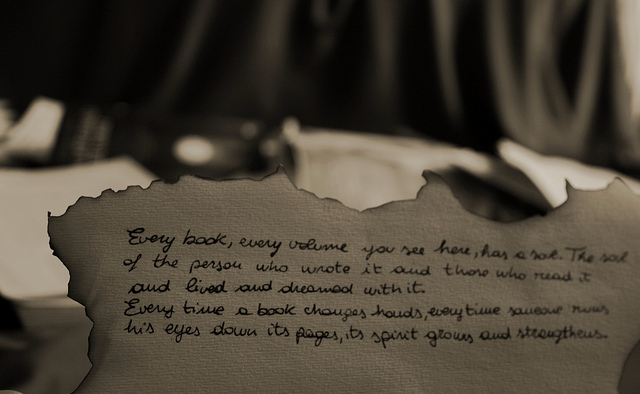 Every book, every volume you see here, has a soul. The soul
of the person who wrote it and those who read it
and lived and dreamed with it.
Every time a book changes hands, every time someone runs
his eyes down its pages, its spirit grows and strengthens.